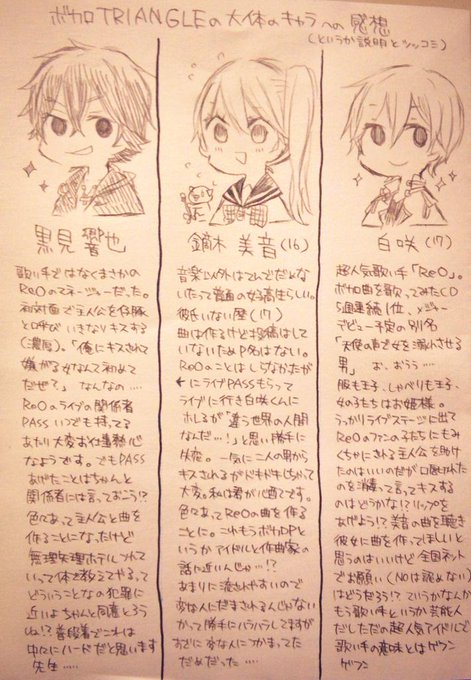 ボカロTRIANGLEの大体のキャラへの感想
(というか説明とツッコミ)
黒見 響也
歌い手ではなくまさかの
ReOのマネージャーだった。
初対面で主人公を仔豚
と呼びいきなりキスする
(濃厚)。「俺にキスされて
嫌がる女なんて初めて
だぜ?」なんなの…
ReOのライブの関係者
PASSいつでも持ってる
あたり大変お仕事熱心
なようです。でもPASS
あげたことはちゃんと
関係者には言っておこう!?
色々あって主人公と曲を
作ることになったけど
無理矢理ホテルつれて
いって体に教えてやるって
どういうことなの犯罪に
近いよちゃんと同意とろう
ね!?普段着でこれは
中々にハードだと思います
先生……
鏑木 美音(16)
音楽以外はてんでだめな
いたって普通の女子高生らしい。
彼氏いない歴(17)
曲は作るけど投稿はして
いないためP名はない。
ReOのことはしらなかたが
←にライブPASSもらって
ライブに行き白咲くんに
ホレるが「違う世界の人間
なんだ…!」と思い勝手に
失恋。一気に二人の男から
キスされるがドキドキしちゃって
大変。私は君が心配です。
色々あってReOの曲を作る
ことに。これもうボカロP
というかアイドルと作曲家の
話に近いんじゃ…!?
あまりに流されやすいので
変な人にだまされるんじゃない
かって勝手にハラハラしてますが
すでに変な人につかまってた
だめだった…
白咲(17)
超人気歌い手「ReO」。
ボカロ曲を歌ってみたCD
5週連続1位、メジャー
デビュー予定の別名
「天使の声で女を溺れさせる
男」 お、おうう……
服も王子、しゃべりも王子、
女の子たちはお姫様。
うっかりライブステージに出て
ReOのファンの子たちにもみ
くちゃにされる主人公を助け
たのはいいのだが口唇切れた
のを消毒って言ってキスする
のはどうかな!?リップを
あげよう!?美音の曲を聴き
彼女に曲を作ってほしいと
思うのはいいけど全国ネット
でお願い(NOは認めない)
はどうだろう!?ていうかなんか
もう歌い手というか芸能人
だしただの超人気アイドルで
歌い手の意味とはゲフン
ゲフン